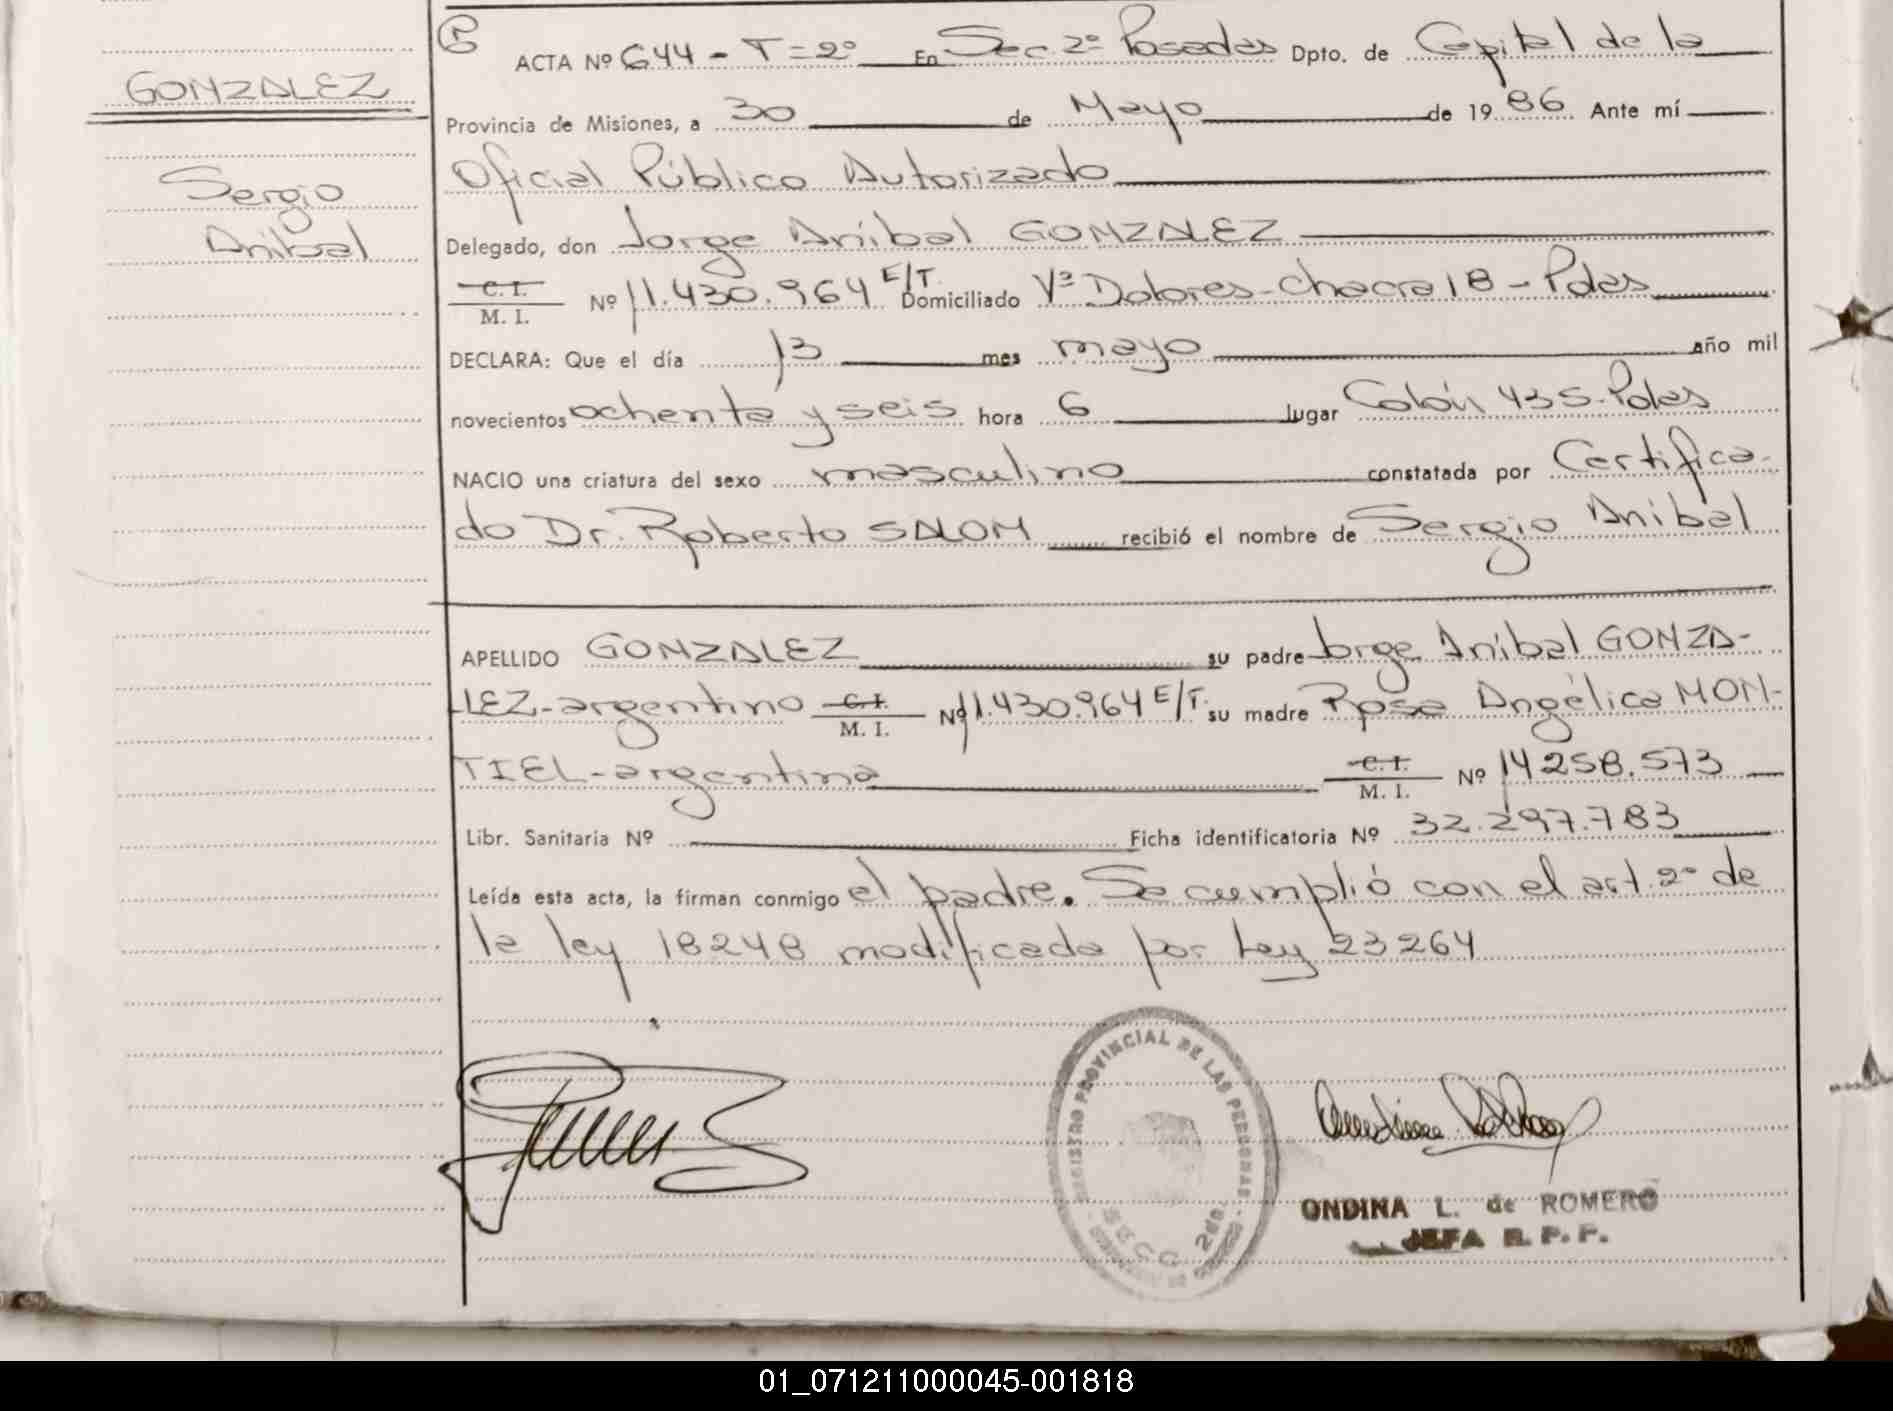 GONZALEZ
Sergio
Anibal
ACTA Nº 644 - T=2º En Sec. 2º Posadas Dpto. de Capital de la
Provincia de Misiones, a 30 de Mayo de 1986. Ante mí
Oficial Público Autorizado
Delegado, don Jorge Aníbal GONZALEZ
C. I.
M. I. Nº 11.430.964 E/T. Domiciliado Vª Dolores-Chacra 18 - Pdas
DECLARA: Que el día 13 mes mayo año mil
novecientos ochenta y seis hora 6 lugar Colón 435-Pdas
NACIO una criatura del sexo masculino constatada por Certifica-
do Dr. Roberto SALOM recibió el nombre de Sergio Anibal
APELLIDO GONZALEZ su padre Jorge Aníbal GONZA-
LEZ-argentino C. I. M. I. Nº 11.430.964 E/T. su madre Rosa Angélica MON-
TIEL-argentina C. I. M. I. Nº 14258.573
Libr. Sanitaria Nº Ficha identificatoria Nº 32.297.783
Leída esta acta, la firman conmigo el padre. Se cumplió con el art. 2º de
la ley 18248 modificada por Ley 23264
REGISTRO PROVINCIAL DE LAS PERSONAS
SECC. 2da.
ONDINA L. de ROMERO
JEFA R. P. P.
01_071211000045-001818